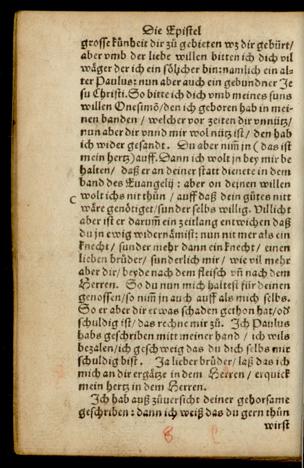 Die Epistel
grosse künheit dir zů gebieten wz dir gebürt/
aber vmb der liebe willen bitten ich dich vil
wäger der ich ein sölicher bin: namlich ein al-
ter Paulus: nun aber auch ein gebundner Je
su Christi. So bitte ich dich vmb meines suns
willen Onesimō/ den ich geboren hab in mei-
nen banden / welcher vor zeiten dir vnnütz/
nun aber dir vnnd mir wol nütz ist/ den hab
ich wider gesandt. Du aber nim̄ jn ( das ist
mein hertz) auff. Dann ich wolt jn bey mir be
halten/ daß er an deiner statt dienete in dem
band des Euangelij : aber on deinen willen
wolt ichs nit thůn / auff daß dein gůtes nitt
C
wäre genötiget/ sunder selbs willig. Villicht
aber ist er darum̄ ein zitlang entwichen daß
du jn ewig widernämist: nun nit mer als ein
knecht/ sunder mehr dann ein knecht/ einen
lieben brůder/ sunderlich mir / wie vil mehr
aber dir/ beyde nach dem fleisch vn̄ nach dem
Herren. So du nun mich haltest für deinen
genossen/ so nim̄ jn auch auff als mich selbs.
So er aber dir etwas schaden gethon hat/ od
schuldig ist/ das rechne mir zů. Ich Paulus
habs geschriben mitt meiner hand / ich wils
bezalen/ ich geschweig das du dich selbs mir
schuldig bist. Ja lieber brůder/ laß das ich
mich an dir ergätze in dem Herren/ erquick
mein hertz in dem Herren.
Ich hab auß zůuersicht deiner gehorsame
geschriben: dann ich weiß das du gern thůn
wirst